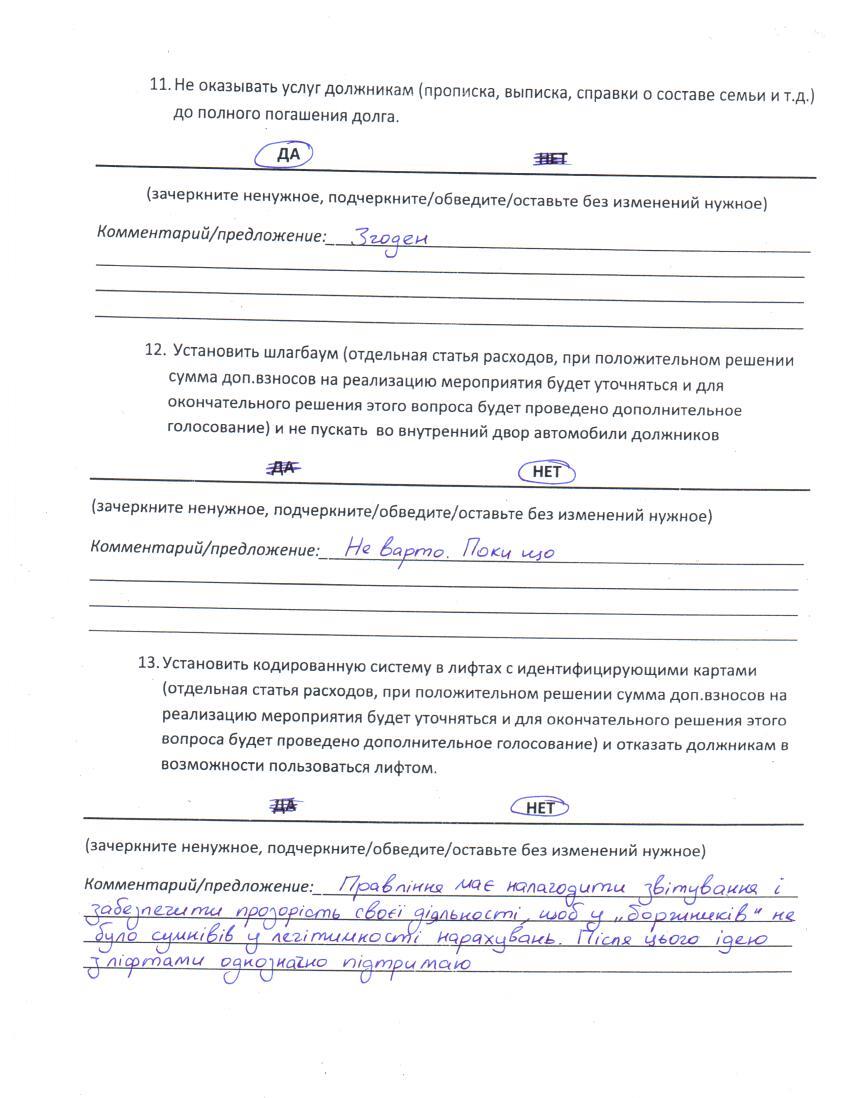 11. Не оказывать услуг должникам (прописка, выписка, справки о составе семьи и т.д.)
до полного погашения долга.
ДА НЕТ
(зачеркните ненужное, подчеркните/обведите/оставьте без изменений нужное)
Комментарий/предложение: Згоден
12. Установить шлагбаум (отдельная статья расходов, при положительном решении
сумма доп.взносов на реализацию мероприятия будет уточняться и для
окончательного решения этого вопроса будет проведено дополнительное
голосование) и не пускать во внутренний двор автомобили должников
ДА НЕТ
(зачеркните ненужное, подчеркните/обведите/оставьте без изменений нужное)
Комментарий/предложение: Не варто. Поки що
13. Установить кодированную систему в лифтах с идентифицирующими картами
(отдельная статья расходов, при положительном решении сумма доп.взносов на
реализацию мероприятия будет уточняться и для окончательного решения этого
вопроса будет проведено дополнительное голосование) и отказать должникам в
возможности пользоваться лифтом.
ДА НЕТ
(зачеркните ненужное, подчеркните/обведите/оставьте без изменений нужное)
Комментарий/предложение: Правління має налагодити звітування і
забезпечити прозорість своєї діяльності, щоб у „боржників“ не
було сумнівів у легітимності нарахувань. Після цього ідею
з ліфтами однозначно підтримаю